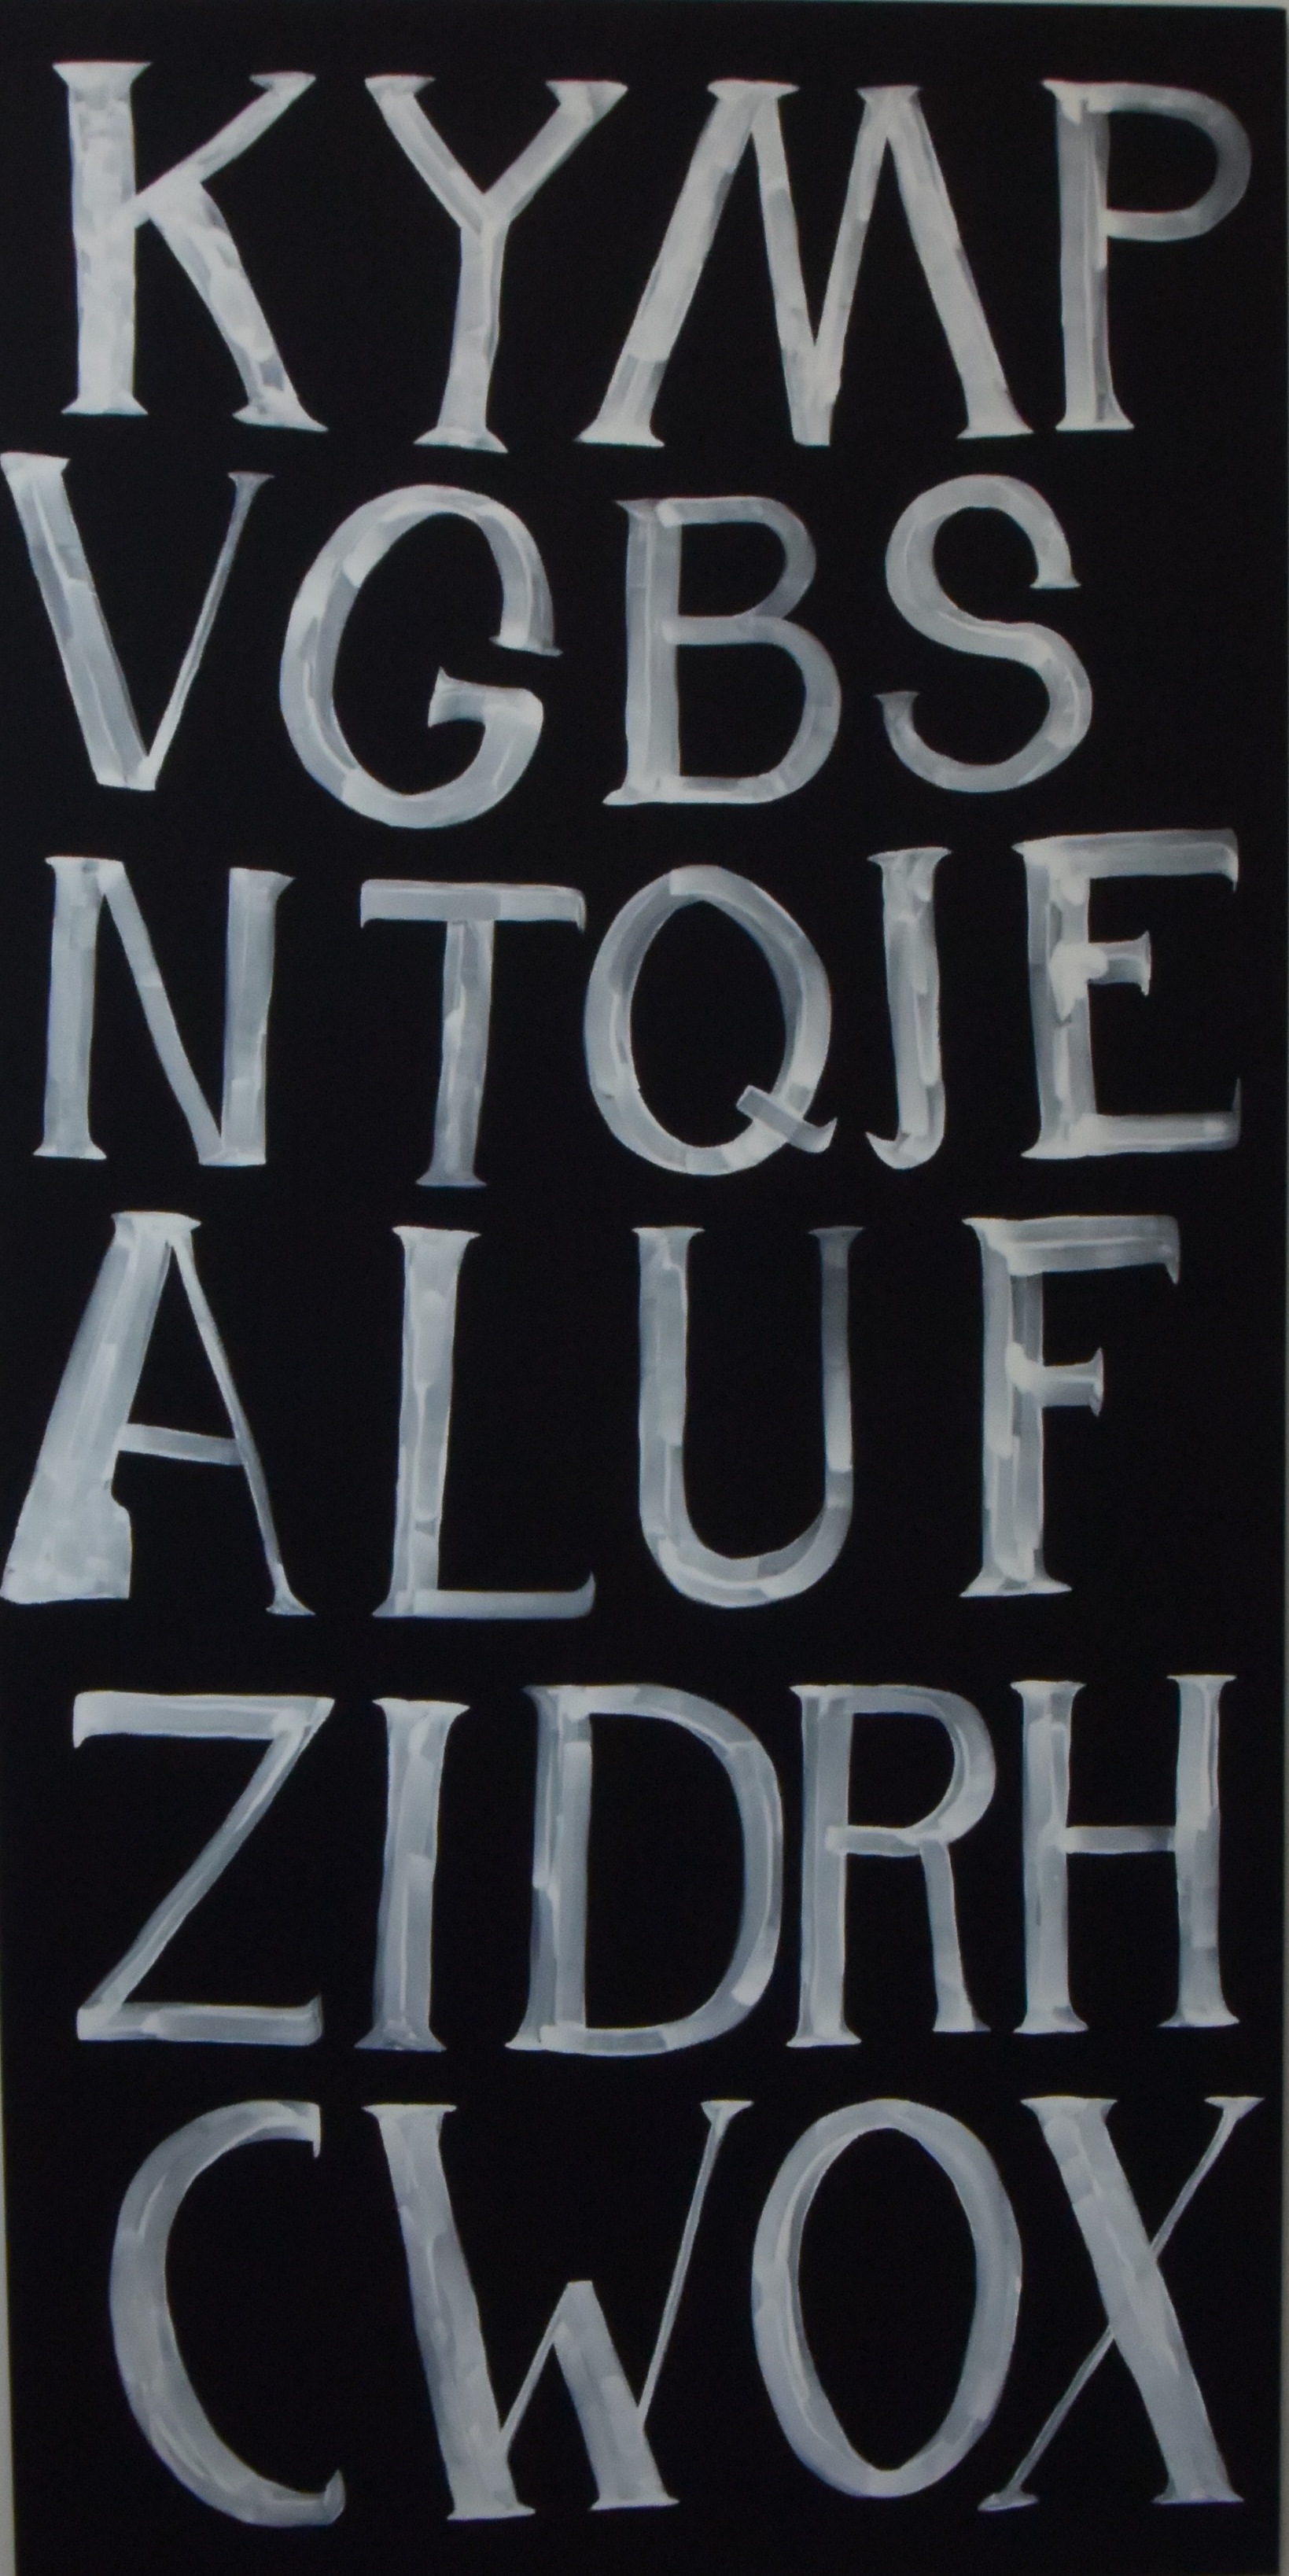 KYMP
VGBS
NTQJE
ALUF
ZIDRH
CWOX